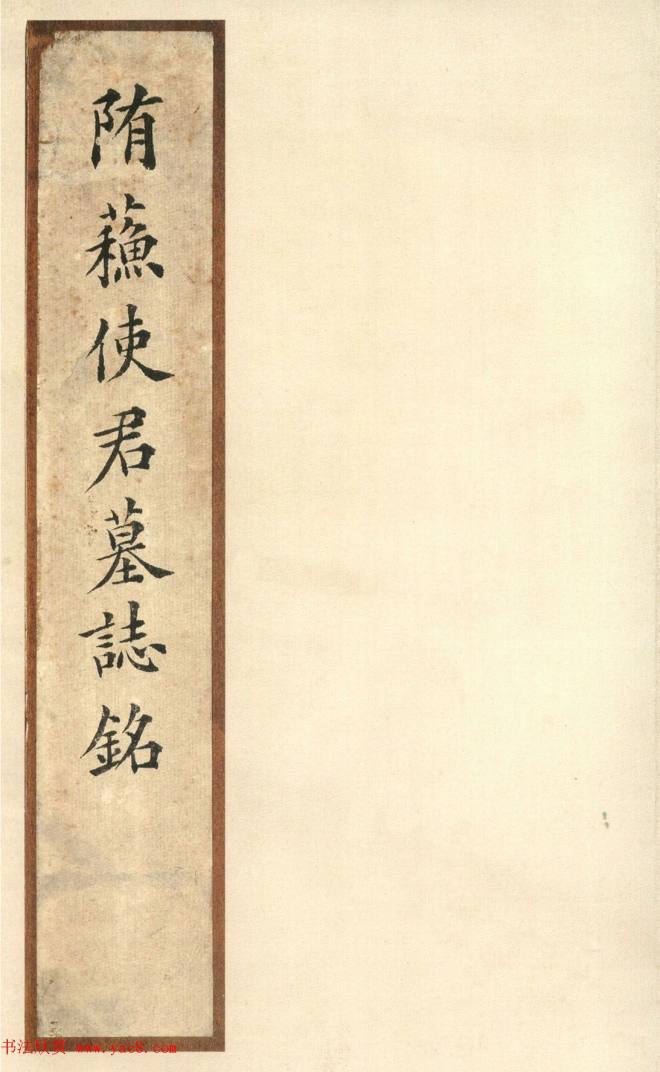 隋蘓使君墓誌銘
书法欣赏 www.yac8.com